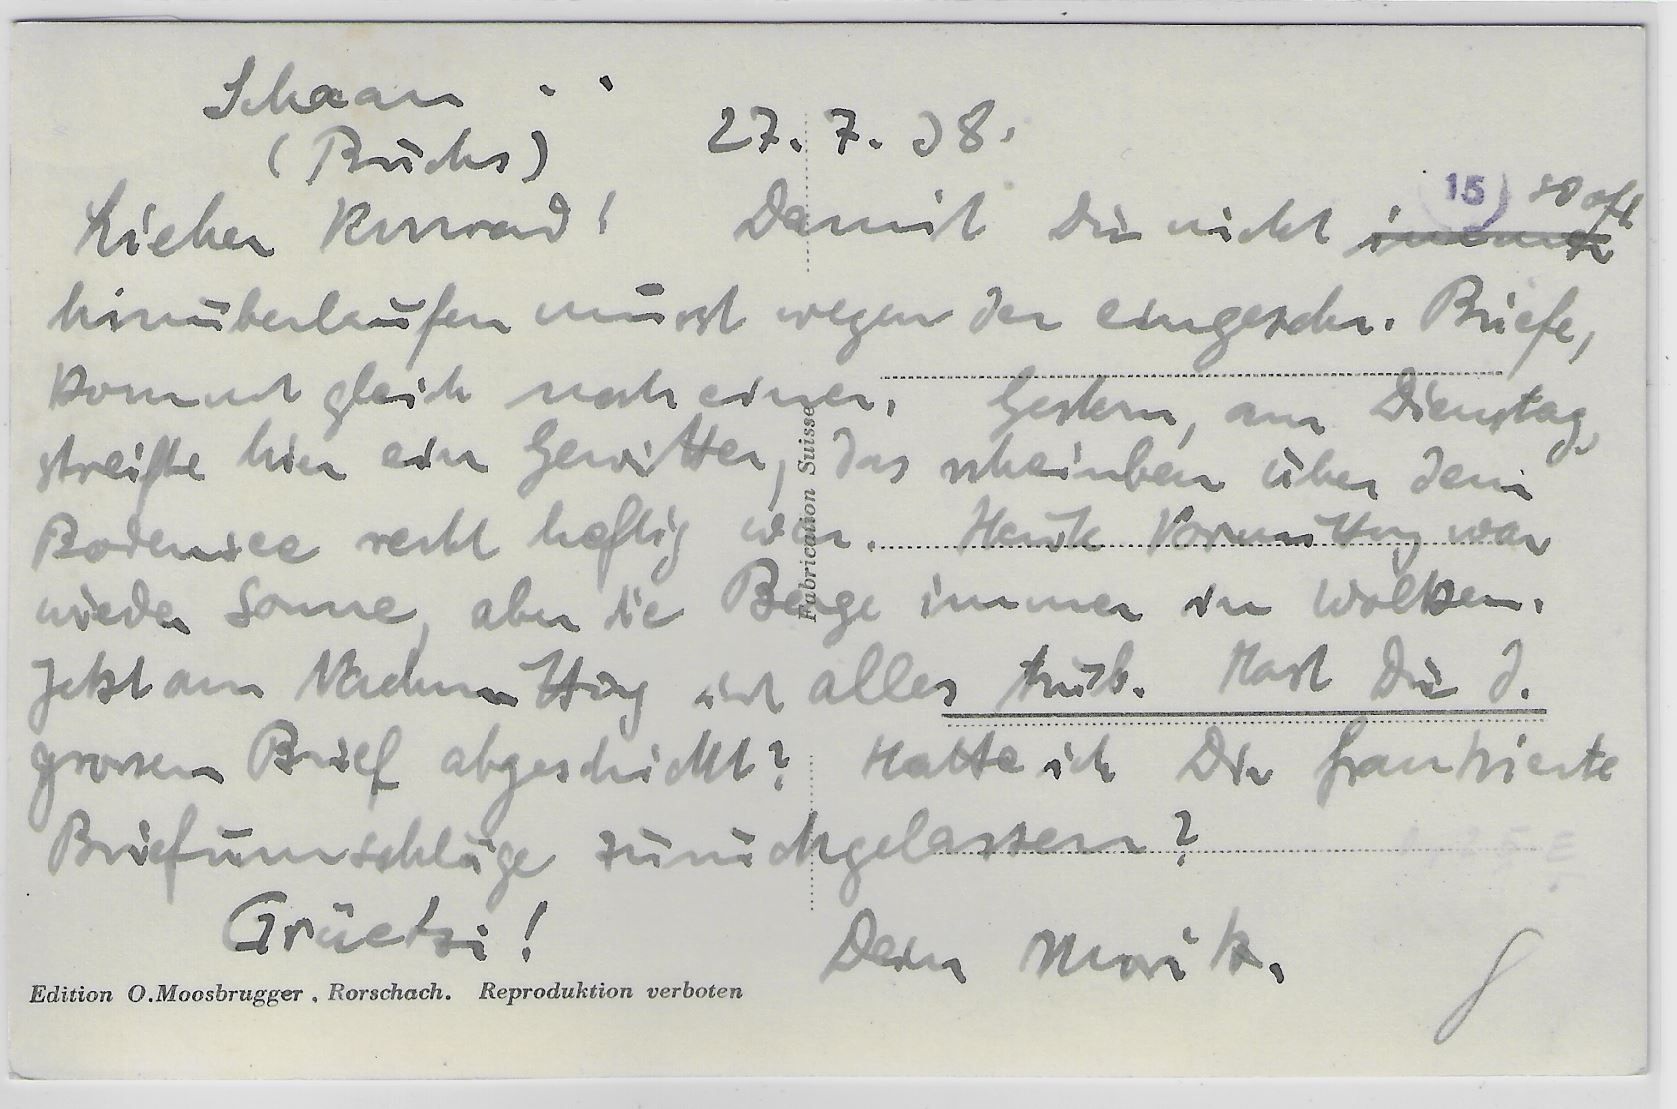 Schaan
(Buchs)
27. 7. 38.
15
Lieber Konrad! Damit Du nicht immer so oft
hinüberlaufen musst wegen der eingeschr. Briefe,
kommt gleich noch einer. Gestern, am Dienstag,
streifte hier ein Gewitter, das scheinbar über dem
Bodensee recht heftig war. Heute Vormittag war
wieder Sonne, aber die Berge immer in Wolken.
Jetzt am Nachmittag ist alles trüb. Hast Du d.
grossen Brief abgeschickt? Hatte ich Dir frankierte
Briefumschläge zurückgelassen?
Grüetzi!
Dein Moritz.
Fabrication Suisse
Edition O. Moosbrugger, Rorschach. Reproduktion verboten